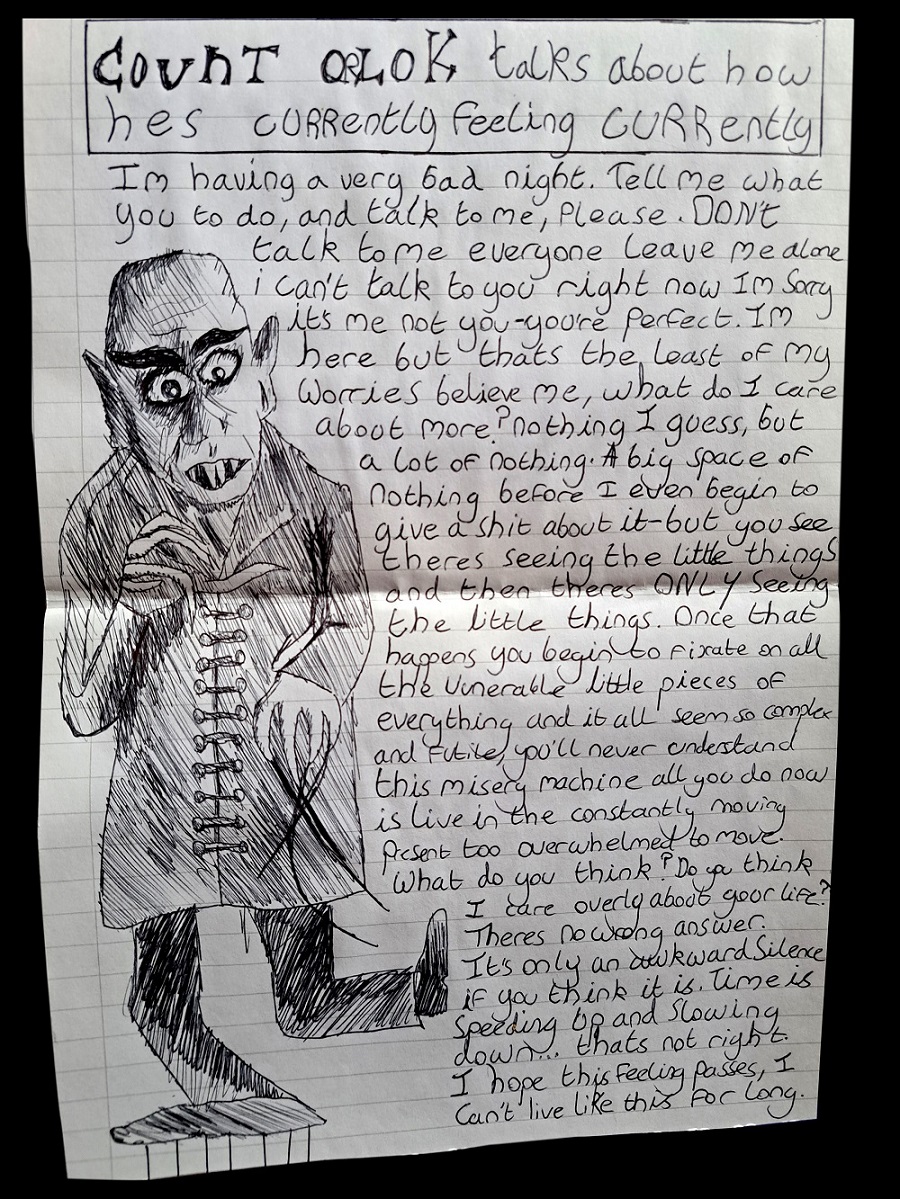 COUNT ORLOK talks about how
hes CURRently feeling CURRently
Im having a very bad night. Tell me what
you to do, and talk to me, Please. DON't
talk to me everyone leave me alone
i can't talk to you right now Im Sorry
it's me not you-you're perfect. IM
here but thats the least of my
Worries believe me, what do I care
about more? nothing I guess, but
a lot of nothing. A big space of
nothing before I even begin to
give a shit about it-but you see
theres seeing the little things
and then theres ONLY seeing
the little things. Once that
happens you begin to fixate on all
the Vunerable little pieces of
everything and it all seem so complex
and futile, you'll never understand
this misery machine all you do now
is live in the constantly moving
present too overwhelmed to move.
What do you think? Do you think
I care overly about your life?
Theres no wrong answer.
It's only an awkward Silence
if you think it is. Time is
Speeding Up and Slowing
down... thats not right.
I hope this feeling passes, I
Can't live like this for long.